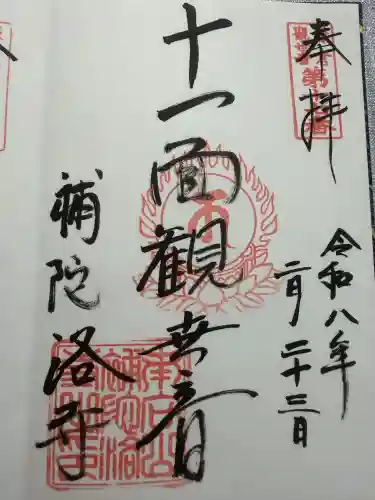 奉拝
令和八年
二月二十三日
十一面観世音
補陀洛寺